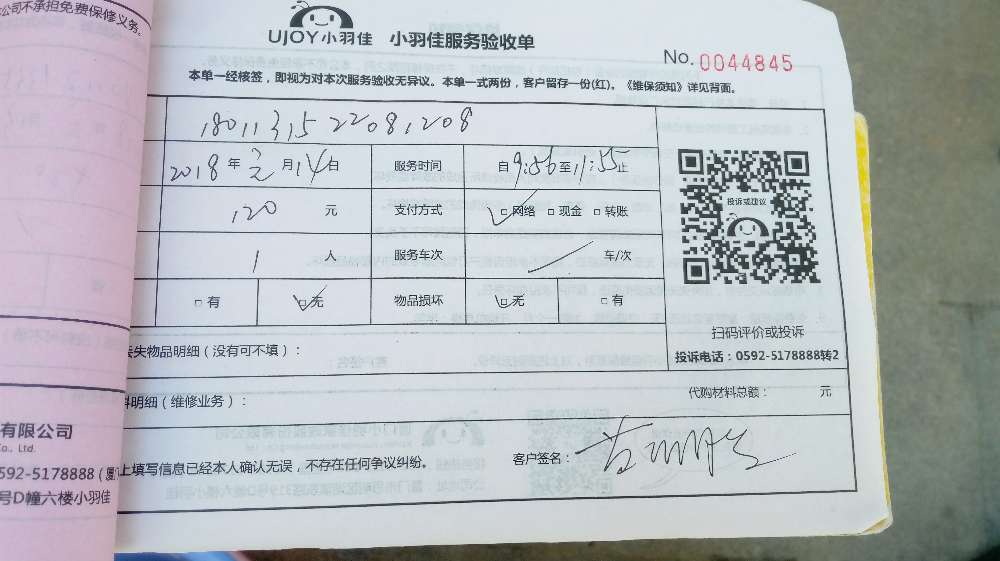 公司不承担免费保修义务。
UJOY小羽佳 小羽佳服务验收单
No. 0044845
本单一经核签，即视为对本次服务验收无异议。本单一式两份，客户留存一份(红)。《维保须知》详见背面。
1801131522081208
2018年 月14日 服务时间 自9:56至11:55止
120 元 支付方式 ✓□网络 □现金 □转账
投诉或建议
1 人 服务车次 / 车/次
□有 ✓□无 物品损坏 ✓□无 □有
扫码评价或投诉
失物品明细（没有可不填）：
投诉电话：0592-5178888转2
料明细（维修业务）：
代购材料总额： 元
有限公司
Co., Ltd.
592-5178888（厦
上填写信息已经本人确认无误，不存在任何争议纠纷。
客户签名：
号D幢六楼小羽佳